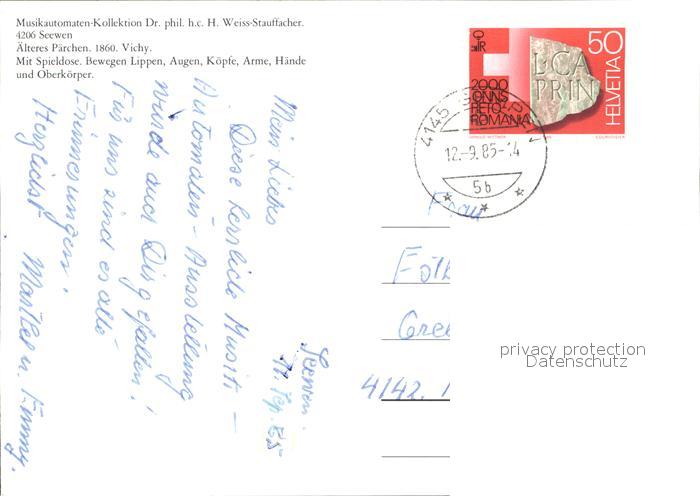 Musikautomaten-Kollektion Dr. phil. h.c. H. Weiss-Stauffacher.
4206 Seewen
Älteres Pärchen. 1860. Vichy.
Mit Spieldose. Bewegen Lippen, Augen, Köpfe, Arme, Hände
und Oberkörper.
Seewen.
11. Sep. 85
Mein Liebes
Diese herrliche Musik-
Automaten-Ausstellung
würde auch Dir gefallen!
Für uns sind es alte
Erinnerungen!
Herzlichst
50
HELVETIA
LCA
PRIN
2000
ONNS
RETO-
ROMANIA
4145
12.-9.85-14
5b
Frau
4142.
privacy protection
Datenschutz